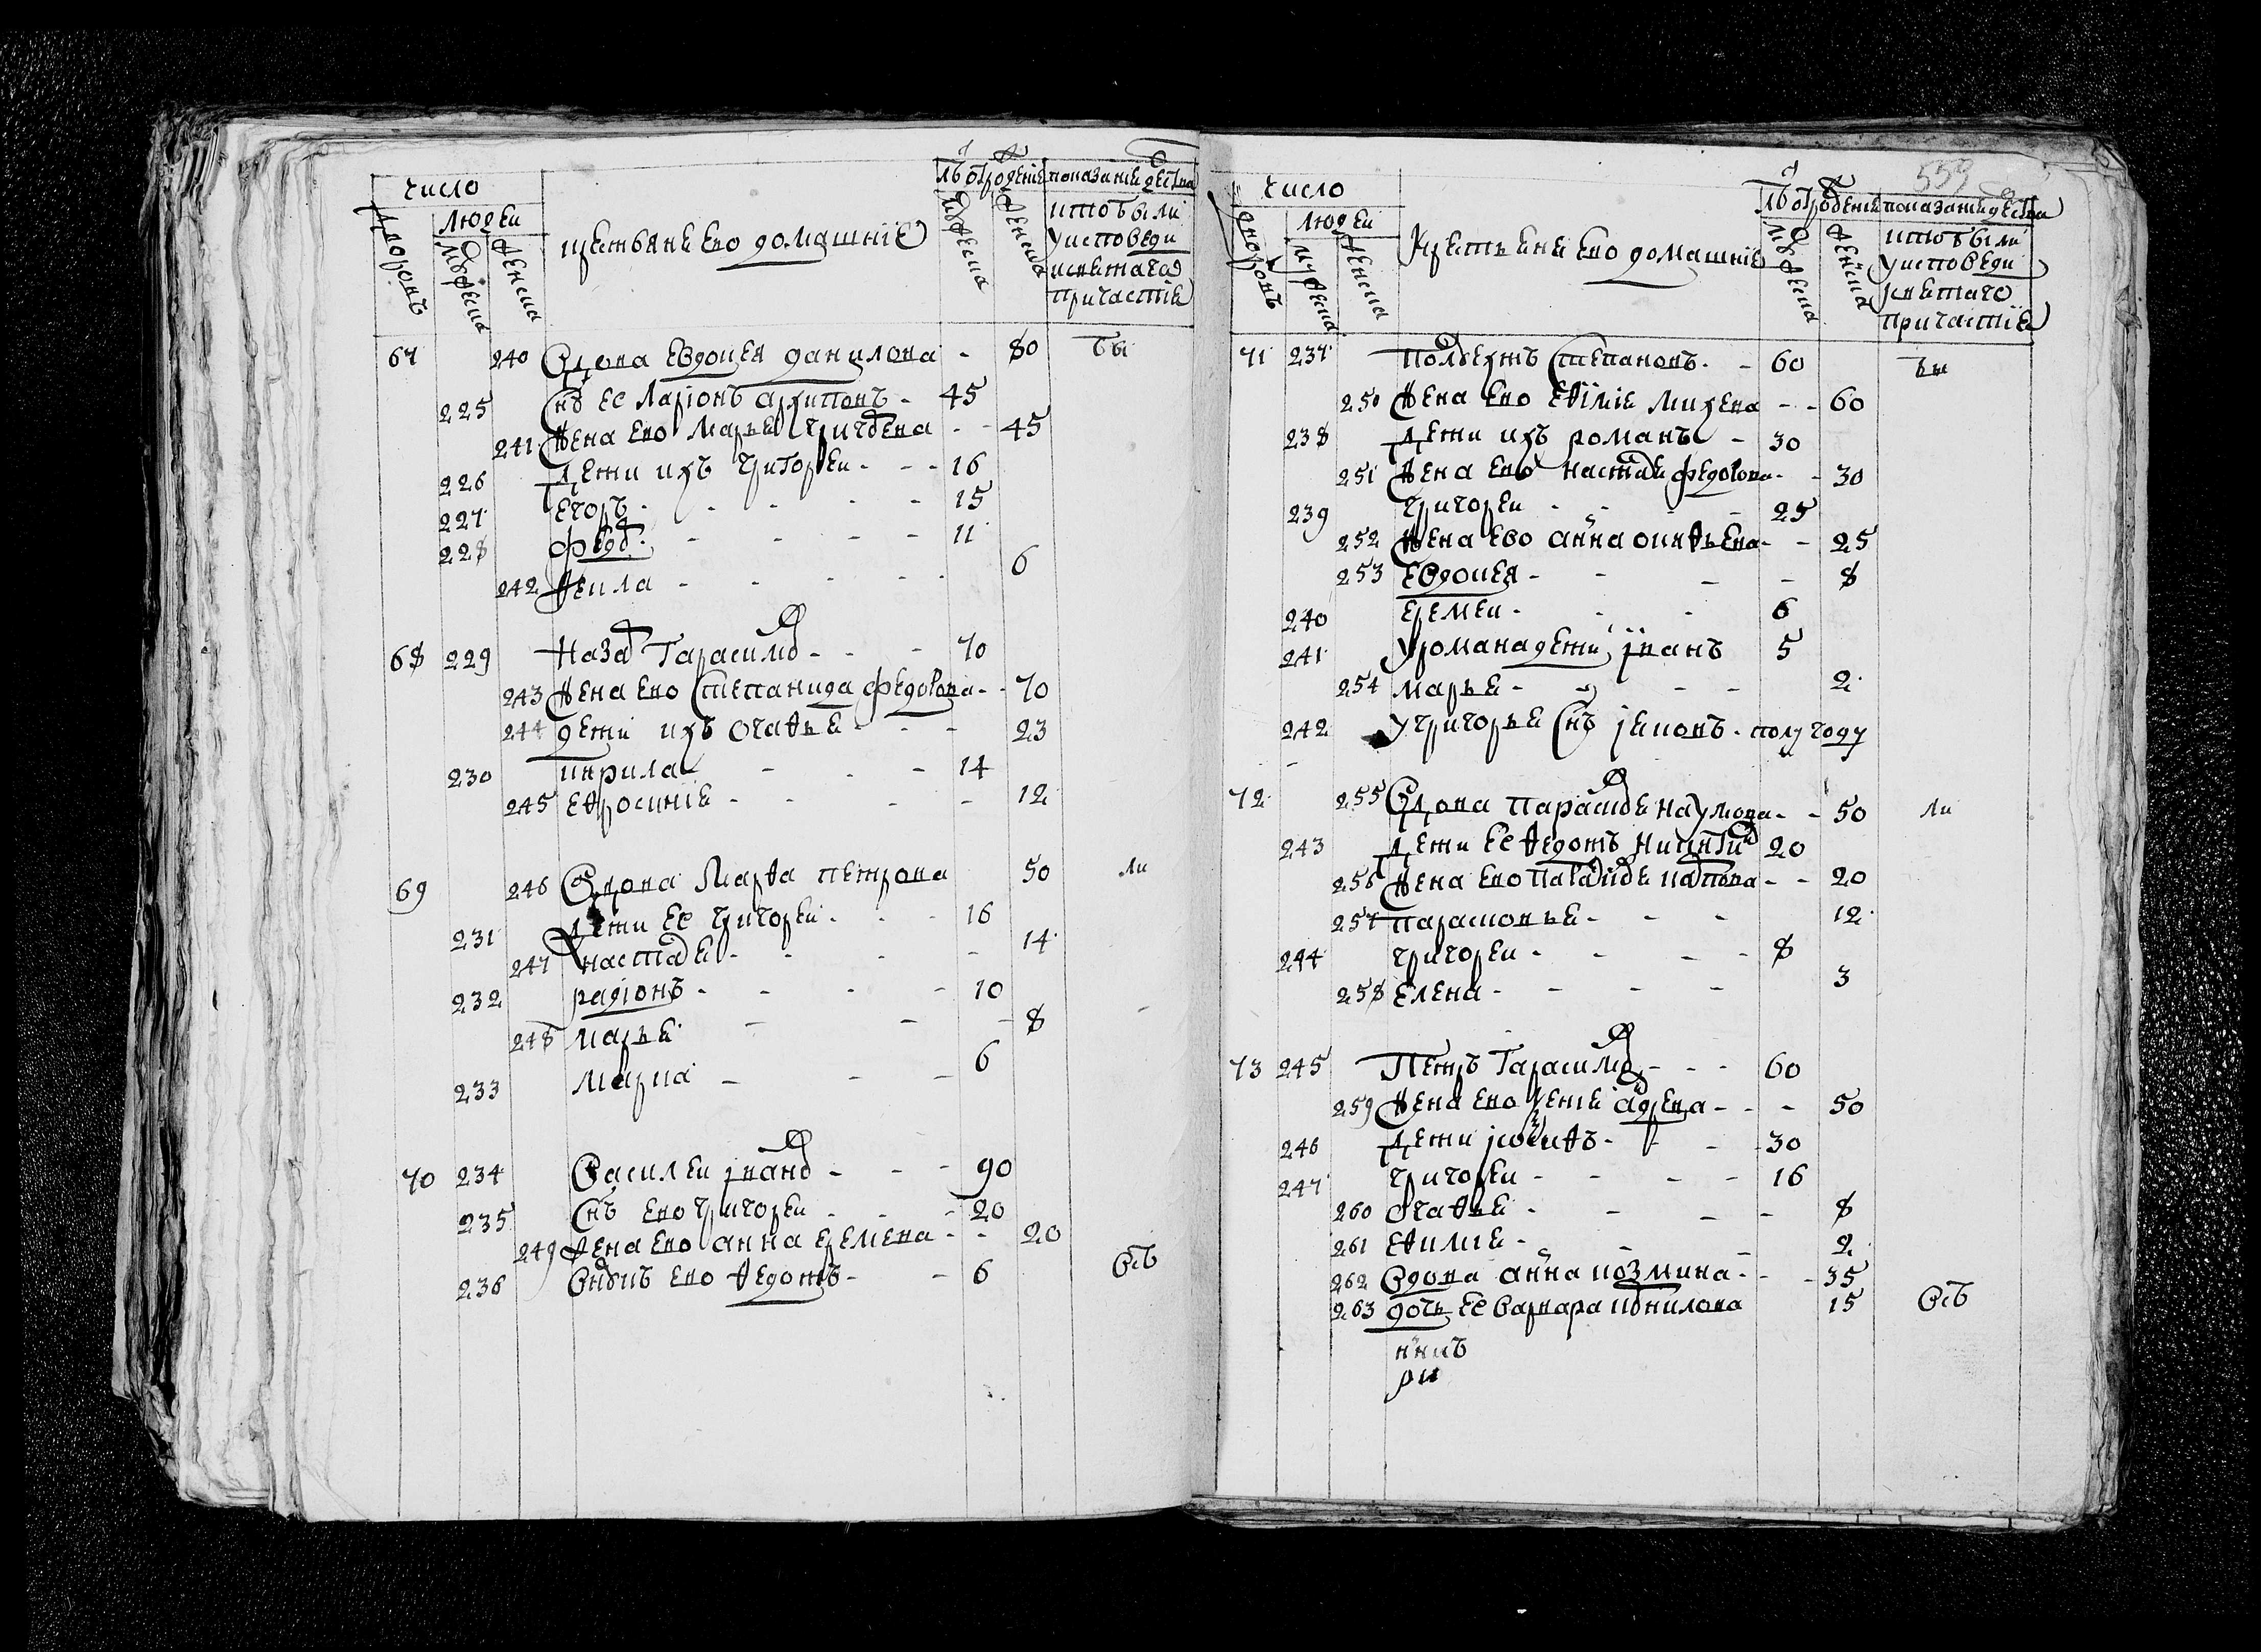 число
людеи
дворовъ
мужеска
женска
крестьяне ево домашнїе
лѣ от рожденїе
мужеска
женска
показанїе действа
кто были
у исповеди
и святаго
причастїе
67 240 Вдова Евдокея данилова - 80 бы
225 Снъ ее Ларїонъ архиповъ - 45
241 Жена ево марья григорева - - 45
226 Дети ихъ григореи - - - 16
227 Егоръ - - - - - 15
228 федо - - - - - 11
242 Фекла - - - - - 6
68 229 Наза Гарасимо - - - 70
243 Жена ево степанида федорова - - 70
244 дети ихъ огафье - - - 23
230 кирила - - - 14
245 Ефросинїе - - - - 12
69 246 Вдова Марфа петрова 50 ли
231 дети ее григореи - - - 16
247 настасе - - - 14
232 радїонъ - - - 10
248 марье - - - 8
233 марка - - - 6
70 234 Василеи iвано - - - 90
235 Снъ ево григореи - - - 20
249 Жена ево анна еремева - - 20
236 Внукъ ево Федотъ - - 6 Въ
559
число
людеи
дворовъ
мужеска
женска
крестьяне ево домашнїе
лѣ от рожденїе
мужеска
женска
показанїе действа
кто были
у исповеди
и святаго
причастїе
71 237 Полуехтъ Степановъ - - 60 бы
250 Жена ево Ефимїе михева - - 60
238 Дети ихъ романъ - 30
251 Жена ево настасе федорова - - 30
239 григореи - - - 25
252 Жена ево анна окифьева - - 25
253 Евдокея - - - - 8
240 еремеи - - - 6
241 У романа дети iванъ 5
254 марье - - - - 2
242 У григорье снъ iяковъ - полу году
72 255 Вдова параскове наумова - - 50 ли
243 Дети ее Федотъ никити 20
256 Жена ево карпова - - 20
257 парасковье - - - 12
244 григореи - - - - 8
258 Елена - - - - 3
73 245 Петръ Гарасимо - - - 60
259 Жена ево ксенїе адрева - - - 50
246 Дети iосифъ - - - 30
247 григореи - - - - 16
260 огафье - - - - 8
261 Ефимие - - - 2
262 Вдова анна козмина - - - 35
263 дочь ее варвара корнилова 15 Въ